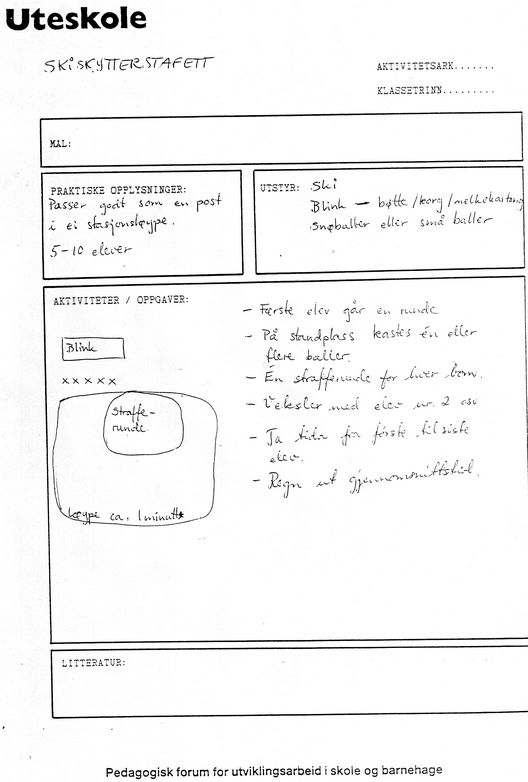 Uteskole
SKISKYTTERSTAFETT
AKTIVITETSARK.......
KLASSETRINN.........
MÅL:
PRAKTISKE OPPLYSNINGER:
Passer godt som en post
i ei stasjonsløype.
5-10 elever
UTSTYR: Ski
Blink — bøtte/korg/melkekartong
Snøballer eller små baller
AKTIVITETER / OPPGAVER:
Blink
x x x x x
Straffe-
runde
Løype ca. 1 minutt
- Første elev går en runde
- På standplass kastes én eller
flere baller.
- Én strafferunde for hver bom.
- Veksler med elev nr. 2 osv
- Ta tida fra første til siste
elev.
- Regn ut gjennomsnittstid.
LITTERATUR:
Pedagogisk forum for utviklingsarbeid i skole og barnehage